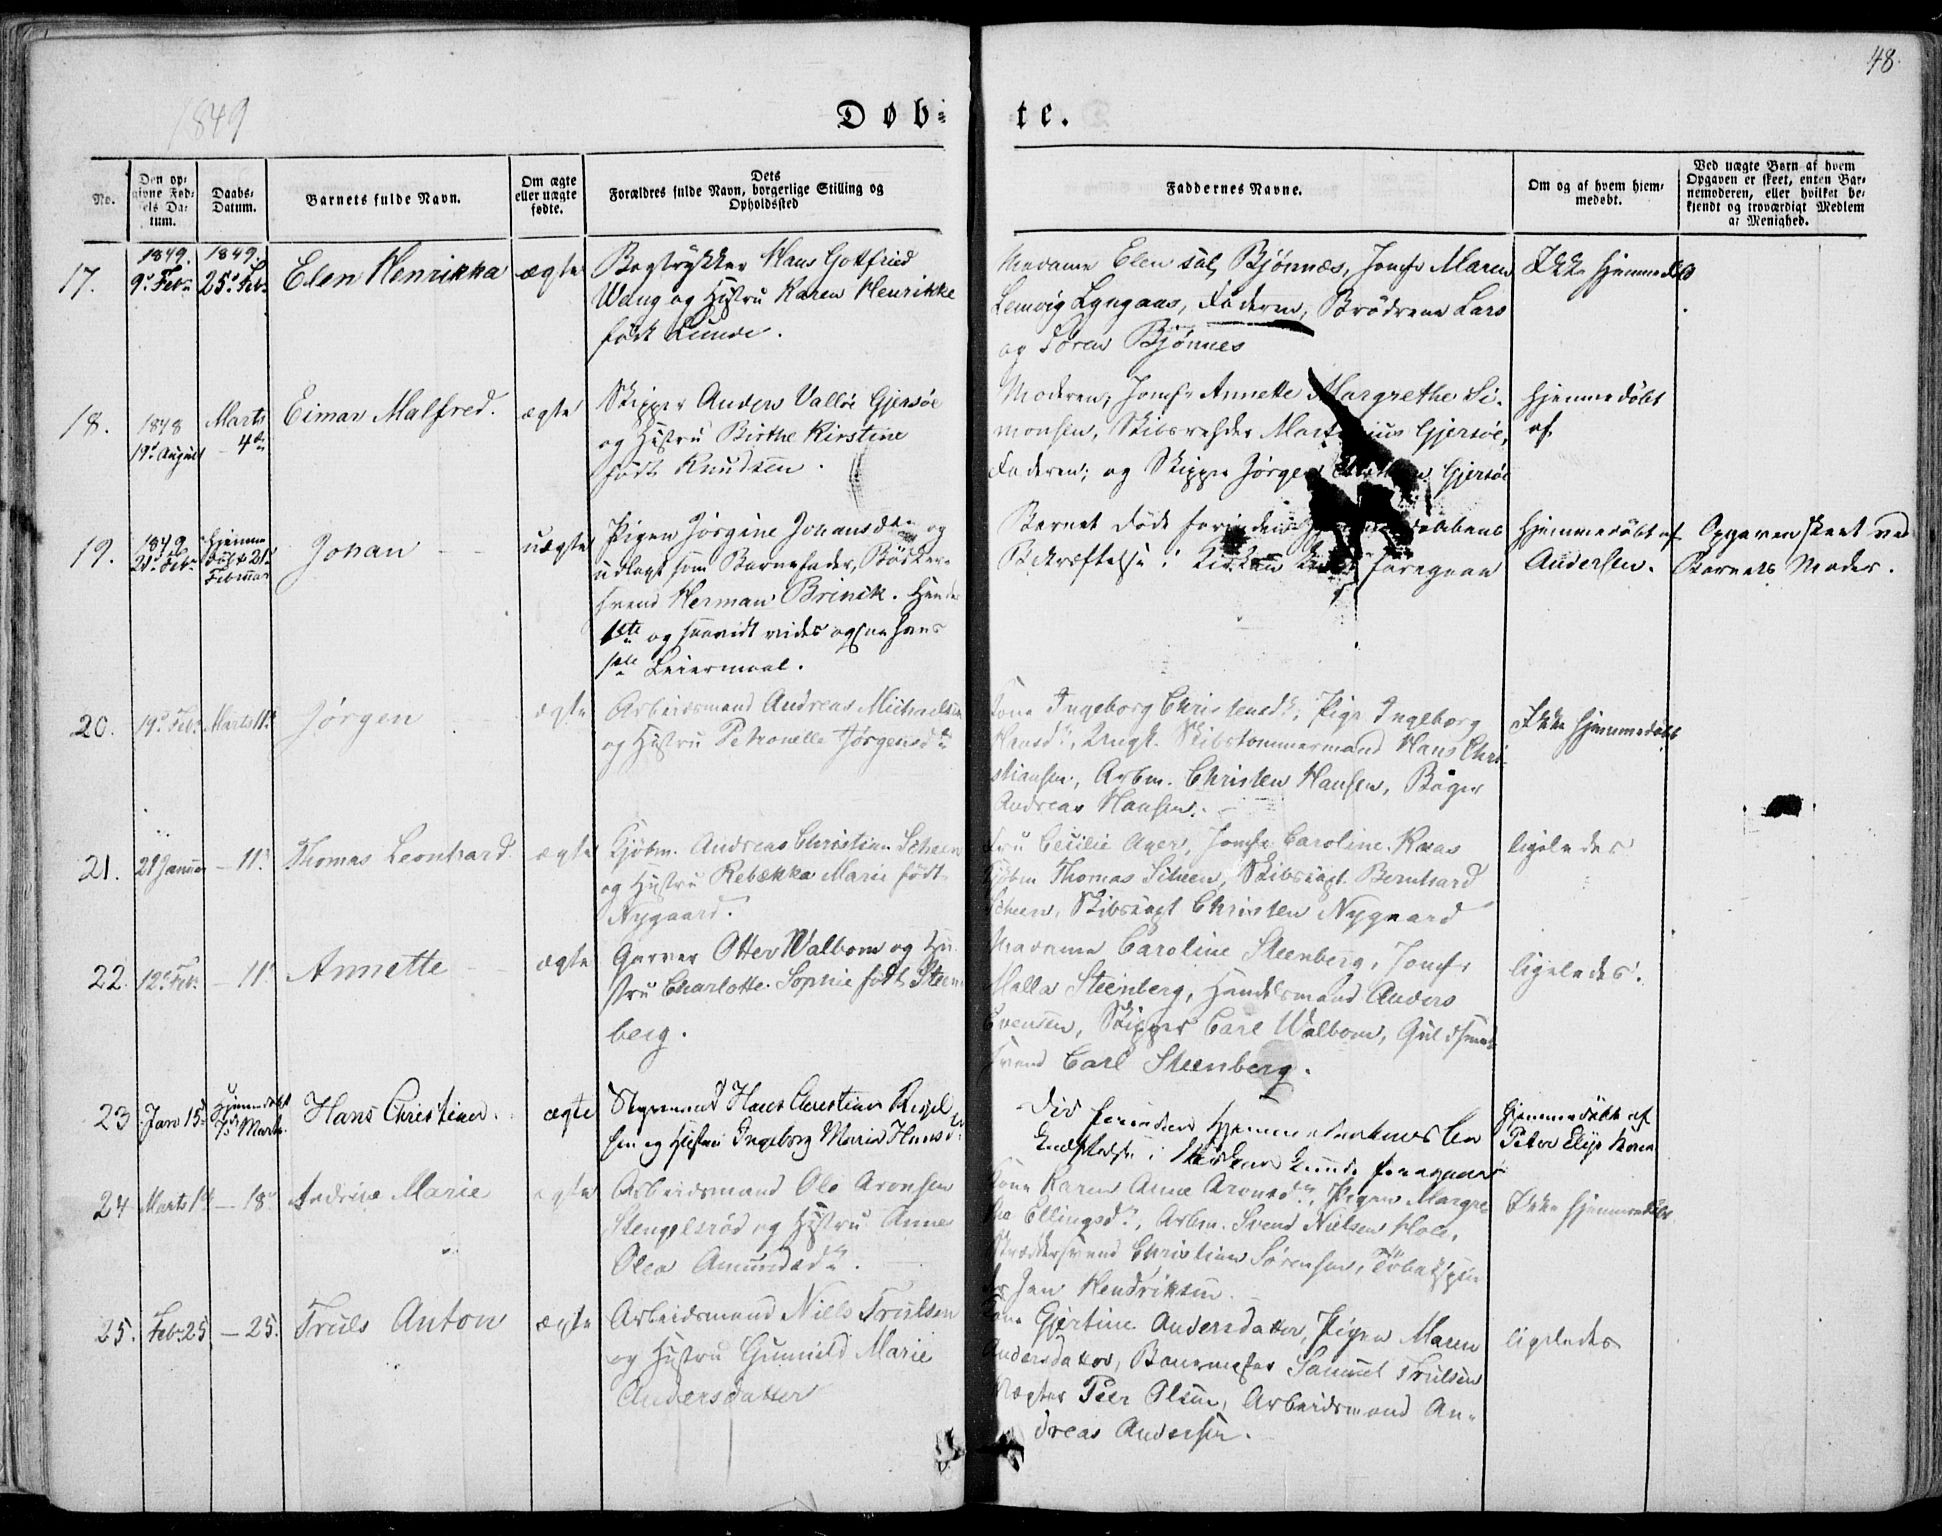 48.
1849
Døb-
te.
No.
Den op-
givne Fød-
sels Da-
tum.
Daabs-
Datum.
Barnets fulde Navn.
Om ægte
eller uægte
fødte.
Dets
Forældres fulde Navn, borgerlige Stilling og
Opholdssted
Faddernes Navne.
Om og af hvem hjem-
medøbt.
Ved uægte Børn af hvem
Opgaven er skeet, enten Bar-
nemoderen, eller hvilket be-
kjendt og troværdigt Medlem
af Menighed.
17.
1849.
9de Febr
1849.
25de Febr
Elen Henrikka
ægte
Bogtrykker Hans Gottfried
Wang og Hustru Karen Henrikke
født Lunde.
Madame Elen Bjønnes, Jomfr Maren
Lemvig Lyngaas, Faderen, Brødrene Lars
og Søren Bjønnes
Ikke hjemmedøbt
18.
1848
19de August
Marts
4de
Eimar Malfred.
ægte
Skipper Anders Valløe Gjersøe
og Hustru Birthe Kirstine
født Knudsen.
Moderen, Jomfr Annette Margrethe Si-
monsen, Skibsrheder Gjersøe,
Faderen; og Skipper Jørgen Gjersøe
Hjemmedøbt
af
19.
1849
21de Febr
Hjemme
døbt 21de
Februar
Johan
uægte
Pigen Jørgine Johansdtr og
udlagt som Barnefader, Bødker-
svend Herman Brinck. Hendes
1ste og saavidt vides ogsaa hans
1ste Leiermaal.
Barnet døde forinden
Bekræftelse i Kirken foregaae
Hjemmedøbt af
Andersen.
Opgaven skeet ved
Barnets Moder.
20.
19de Febr
Marts 11te
Jørgen
ægte
Arbeidsmand Andreas Michaelsen
og Hustru Petronelle Jørgensdtr
Kone Ingeborg Christensdr, Pige Ingeborg
Hansdr, Ungk. Skibstømmermand Hans Chri-
stiansen, Arbm. Christen Hansen, Bager
Andreas Hansen.
Ikke hjemmedøbt
21.
21 Januar
- 11te
Thomas Leonhard.
ægte
Kjøbm. Andreas Christian Scheen
og Hustru Rebekka Marie født
Nygaard.
Fru Cecilie Ager, Jomfr Caroline Raas
Kjøbm Thomas Scheen, Skibscapt. Bernhard
Scheen, Skibscapt Christen Nygaard
ligeledes
22.
12te Febr
- 11te
Annette
ægte
Garver Otter Walbom og Hu-
stru Charlotte Sophie født Steen-
berg.
Madame Caroline Steenberg, Jomfr
Malla Steenberg, Handelsmand Anders
Evensen, Skipper Carl Walbom, Guldsmed-
svend Carl Steenberg.
ligeledes.
23
Jan 15de
Hjemmedøbt
Marts.
Hans Christian.
ægte
Styrmand Hans Christian
sen og Hustru Ingeborg Maria Hansdr.
Død forinden Hjemmedaabens be-
kræftelse i Kirken kunde foregaae
Hjemmedøbt af
24
Marts 1ste
- 18de
Andrine Marie
ægte
Arbeidsmand Ole Aronsen
Stengelsrød og Hustru Anne
Olea Amundsdtr.
Kone Karen Anne Aronsdtr, Pigen Margre-
the Ellingsdtr, Arbm. Svend Nielsen Hole,
Skræddersvend Christian Sørensen, Tobakspin-
der Jan Hendriksen.
Ikke hjemmedøbt
25.
Febr 25
- 25.
Truls Anton
ægte
Arbeidsmand Niels Trulsen
og Hustru Gunnild Marie
Andersdatter
Kone Gjertine Andersdatter, Pigen Maren
Andersdatter, Samuel Trulsen
Vægter Peer Olsen, Arbeidsmand An-
dreas Andersen.
ligeledes